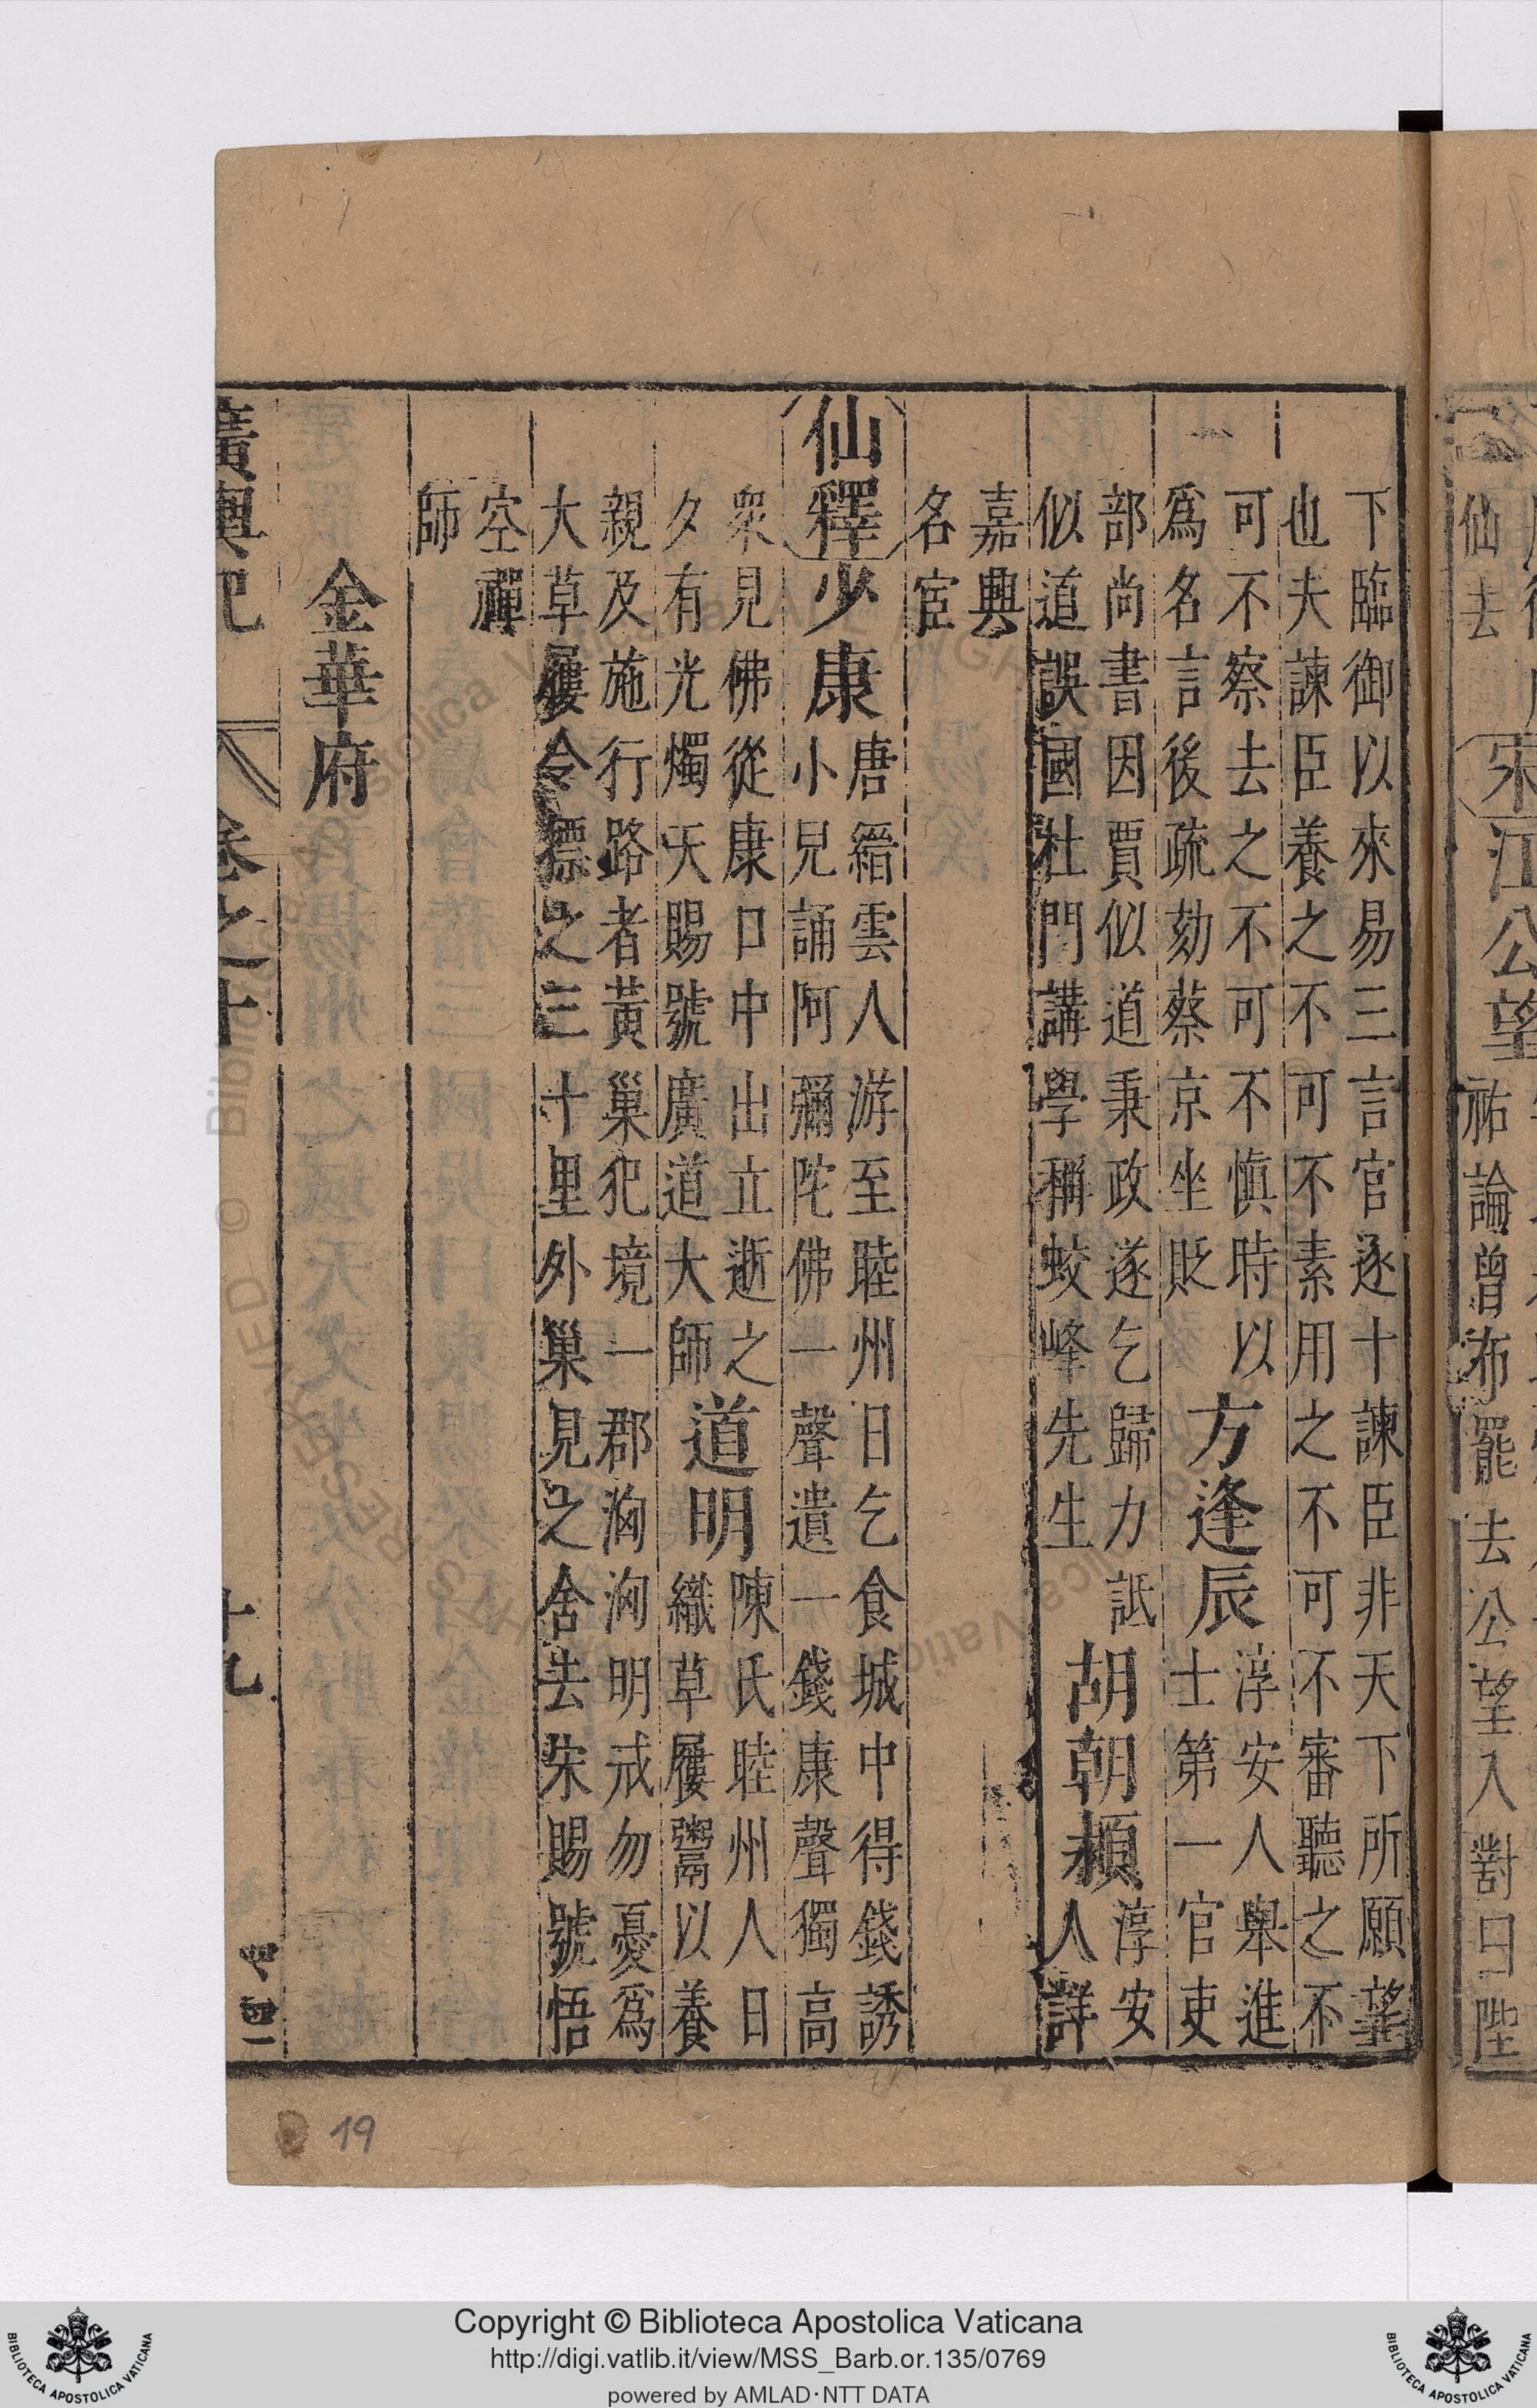 下臨御以來易三言官逐十諫臣非天下所願望
也夫諫臣養之不可不素用之不可不審聽之不
可不察去之不可不慎時以
爲名言後疏劾蔡京坐貶
方逢辰
淳安人舉進
士第一官吏
部尚書因賈似道秉政遂乞歸力詆
似道誤國杜門講學稱蛟峰先生
胡朝頴
淳安
人詳
嘉興
名宦
仙釋
少康
唐縉雲人游至睦州日乞食城中得錢誘
小兒誦阿彌陀佛一聲遺一錢康聲獨高
衆見佛從康口中出立逝之
夕有光燭天賜號廣道大師
道明
陳氏睦州人日
織草屨鬻以養
親及施行路者黃巢犯境一郡洶洶明戒勿憂爲
大草屨令標之三十里外巢見之舍去宋賜號悟
空禪
師
金華府
廣輿記
卷之十
十九
仙去
宋
江公望
祐論曾布罷去公望入對曰陛
19
Copyright © Biblioteca Apostolica Vaticana
http://digi.vatlib.it/view/MSS_Barb.or.135/0769
powered by AMLAD·NTT DATA
BIBLIOTECA APOSTOLICA VATICANA
BIBLIOTECA APOSTOLICA VATICANA